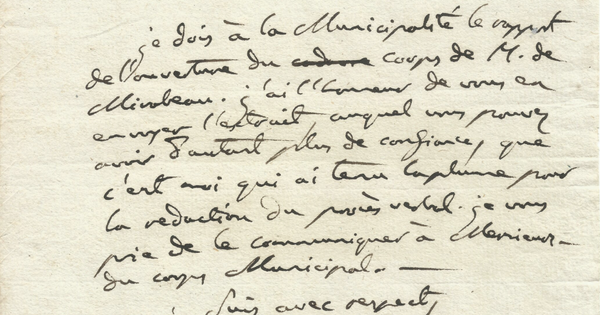 je dois à la Municipalité le rapport
de l'ouverture du cadavre corps de M. de
Mirabeau. j'ai l'honneur de vous en
envoyer l'extrait auquel vous pouvez
avoir d'autant plus de confiance, que
c'est moi qui ai tenu la plume pour
la redaction du procès verbal. je vous
prie de le communiquer à Messieurs
du corps Municipal. —
suis avec respect,